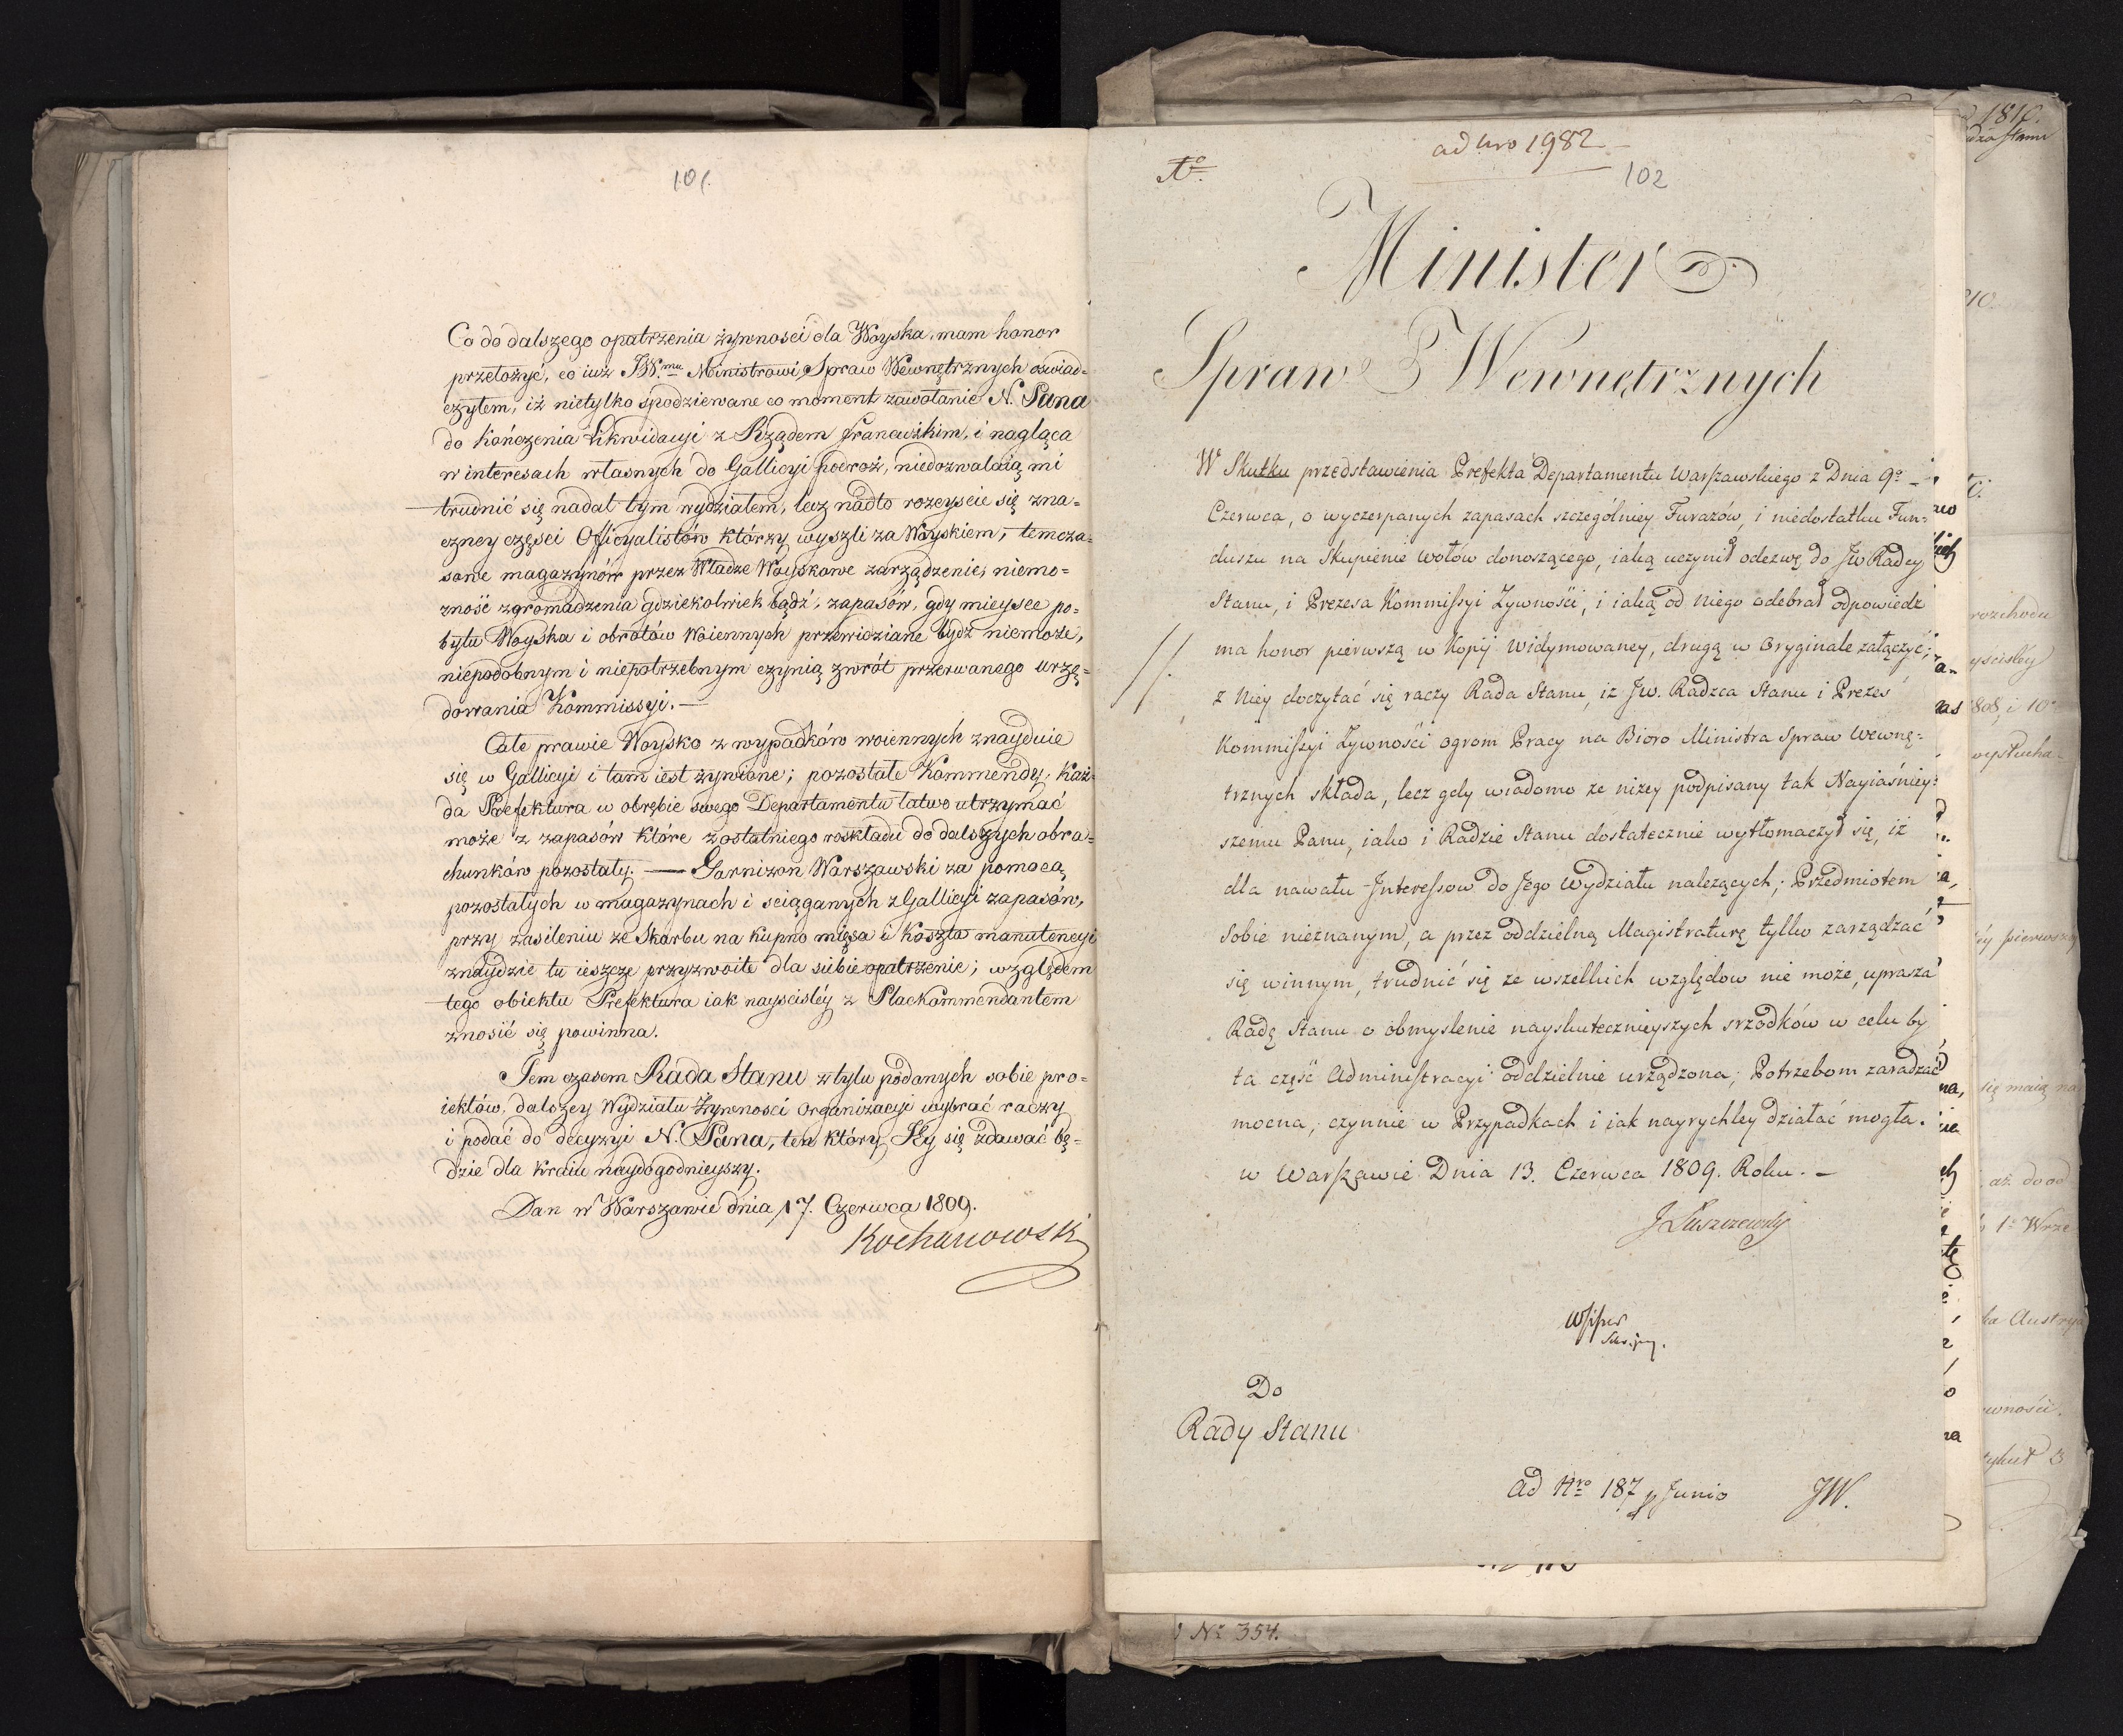 101.
Co do dalszego opatrzenia żywnosci dla Woyska, mam honor
przełożyć, co iuż JW.mu Ministrowi Spraw Wewnętrznych oswiad=
czyłem, iż nietylko spodziewane co moment zawołanie N. Pana
do kończenia Likwidacyi z Rządem francuzkim, i nagląca
w interesach własnych do Gallicyi podroż, niedozwalaią mi
trudnić się nadal tym wydziałem, lecz nadto rozeyscie się zna=
czney części Officyalistów którzy wyszli za Woyskiem, temcza=
sowe magazynów przez Władze Woyskowe zarządzenie, niemo=
zność zgromadzenia gdziekolwiek bądź, zapasów, gdy mieysce po=
bytu Woyska i obrotów woiennych przewidziane bydź niemoże,
niepodobnym i niepotrzebnym czynią zwrót przerwanego urzę=
dowania Kommissyi. —
Całe prawie Woysko z wypadków woiennych znayduie
się w Gallicyi i tam iest żywione; pozostałe Kommendy, każ=
da Prefektura w obrębie swego Departamentu łatwo utrzymać
może z zapasów które z ostatniego roskładu do dalszych obra=
chunków pozostały. — Garnizon Warszawski za pomocą
pozostałych w magazynach i sciąganych z Gallicyi zapasów,
przy zasileniu ze Skarbu na kupno mięsa i koszta manutencyi
znaydzie tu ieszcze przyzwoite dla siebie opatrzenie; względem
tego obiektu Prefektura iak nayscisléy z Plackommendantem
znosić się powinna.
Tem czasem Rada Stanu z tylu podanych sobie pro=
iektów, dalszey Wydziału Żywnosci Organizacyi wybrać raczy
i podać do decyzyi N. Pana, ten który Jéy się zdawać bę=
dzie dla kraiu naydogodnieyszy.
Dan w Warszawie dnia 17. Czerwca 1809.
Kochanowski
ad Nro 1982
No.
102
Minister
Spraw Wewnętrznych
W Skutku przedstawienia Prefekta Departamentu Warszawskiego z Dnia 9o
Czerwca, o wyczerpanych zapasach szczególniey Furazów, i niedostatku Fun=
duszu na Skupienie wołów donoszącego, iaką uczynił odezwę do JW Radcy
Stanu, i Prezesa Kommissyi Zywności, i iaką od niego odebrał odpowiedz
ma honor pierwszą w Kopij widymowaney, drugą w Oryginale załączyć;
z niey doczytać się raczy Rada Stanu, iz JW. Radzca Stanu i Prezes
Kommissyi Zywności ogrom Pracy na Bioro Ministra Spraw Wewnę=
trznych składa, lecz gdy wiadomo ze niżey podpisany tak Nayiaśniey=
szemu Panu, iako i Radzie Stanu dostatecznie wytłomaczył się, iż
dla nawału Interessow do Jego Wydziału nalezących; Przedmiotem
sobie nieznanym, a przez oddzielną Magistraturę tylko zarządzać
się winnym, trudnić się ze wszelkich względow nie może, uprasza
Radę Stanu o obmyslenie nayskutecznieyszych srzodków w celu by
ta część Administracyi oddzielnie urządzona, Potrzebom zaradzać
mocna, czynnie w Przypadkach i jak nayrychley działać mogła.
w Warszawie Dnia 13. Czerwca 1809. Roku. —
J Łuszczewski
Do
Rady Stanu
ad Nro 187 Junio JW.
No 354.
1810.
rozchodu
yscisléy
808, i 10
wysłucha-
éy pierwszey
się maią na
aż do od
1o Wrze
ta Austrya
wności.
tykuł 3